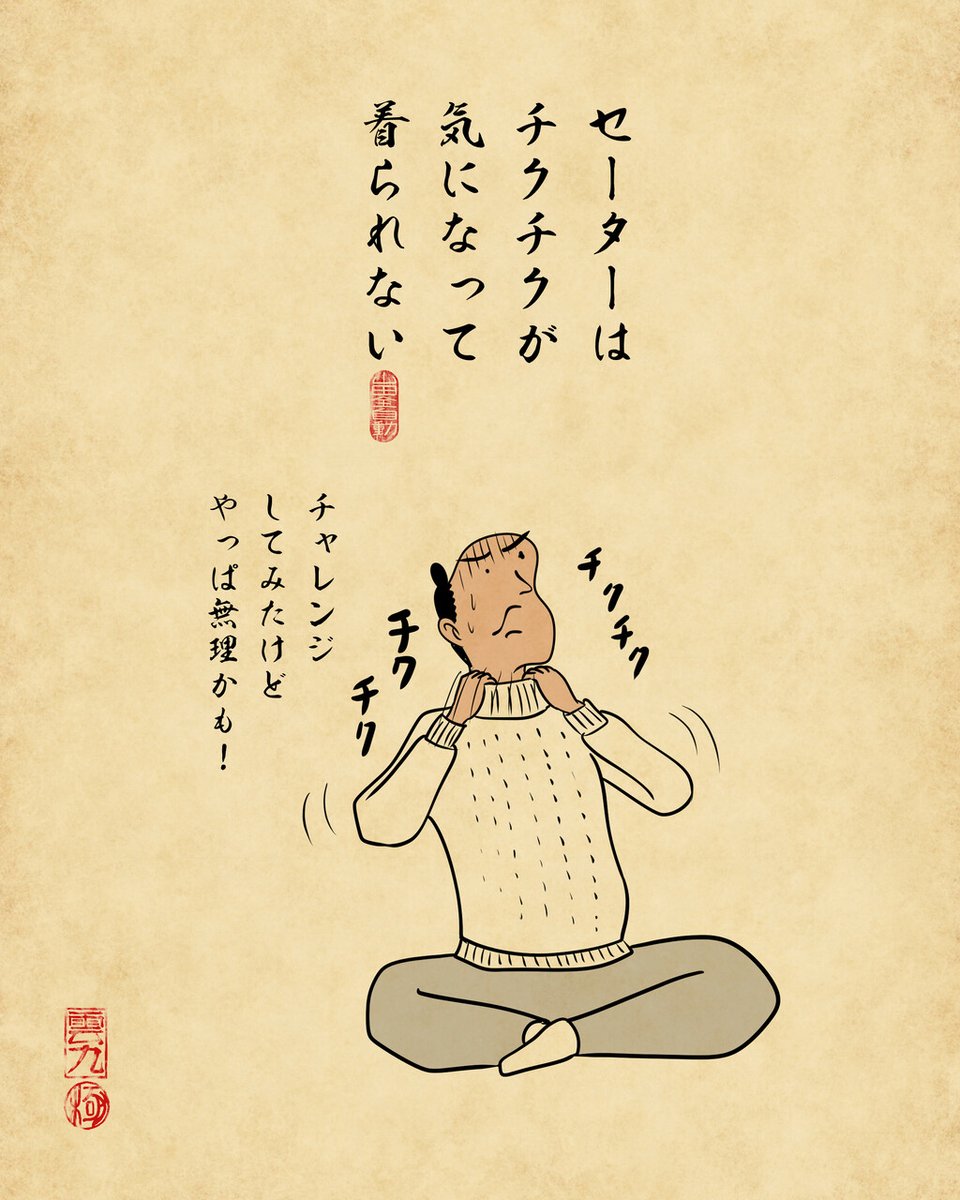 セーターは
チクチクが
気になって
着られない
チャレンジ
してみたけど
やっぱ無理かも!
チクチク
チクチク